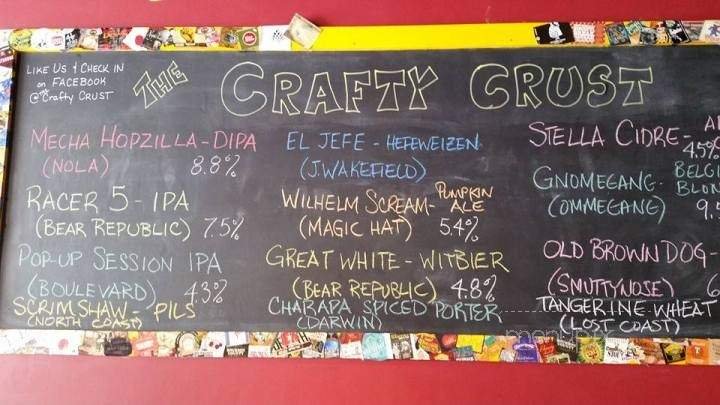 LIKE US & CHECK IN
on FACEBOOK
@ the Crafty CRUST
THE CRAFTY CRUST
MECHA HOPZILLA - DIPA
(NOLA) 8.8%
RACER 5 - IPA
(BEAR REPUBLIC) 7.5%
POP-UP SESSION IPA
(BOULEVARD) 4.3%
SCRIMSHAW - PILS
(NORTH COAST)
EL JEFE - HEFEWEIZEN
(J.WAKEFIELD)
WILHELM SCREAM - PUMPKIN ALE
(MAGIC HAT) 5.4%
GREAT WHITE - WITBIER
(BEAR REPUBLIC) 4.8%
CHARAPA SPICED PORTER
(DARWIN)
STELLA CIDRE -
4.5%
GNOMEGANG - BELGI
BLON
(OMMEGANG) 9.
OLD BROWN DOG -
(SMUTTYNOSE) 6
TANGERINE WHEAT
(LOST COAST)